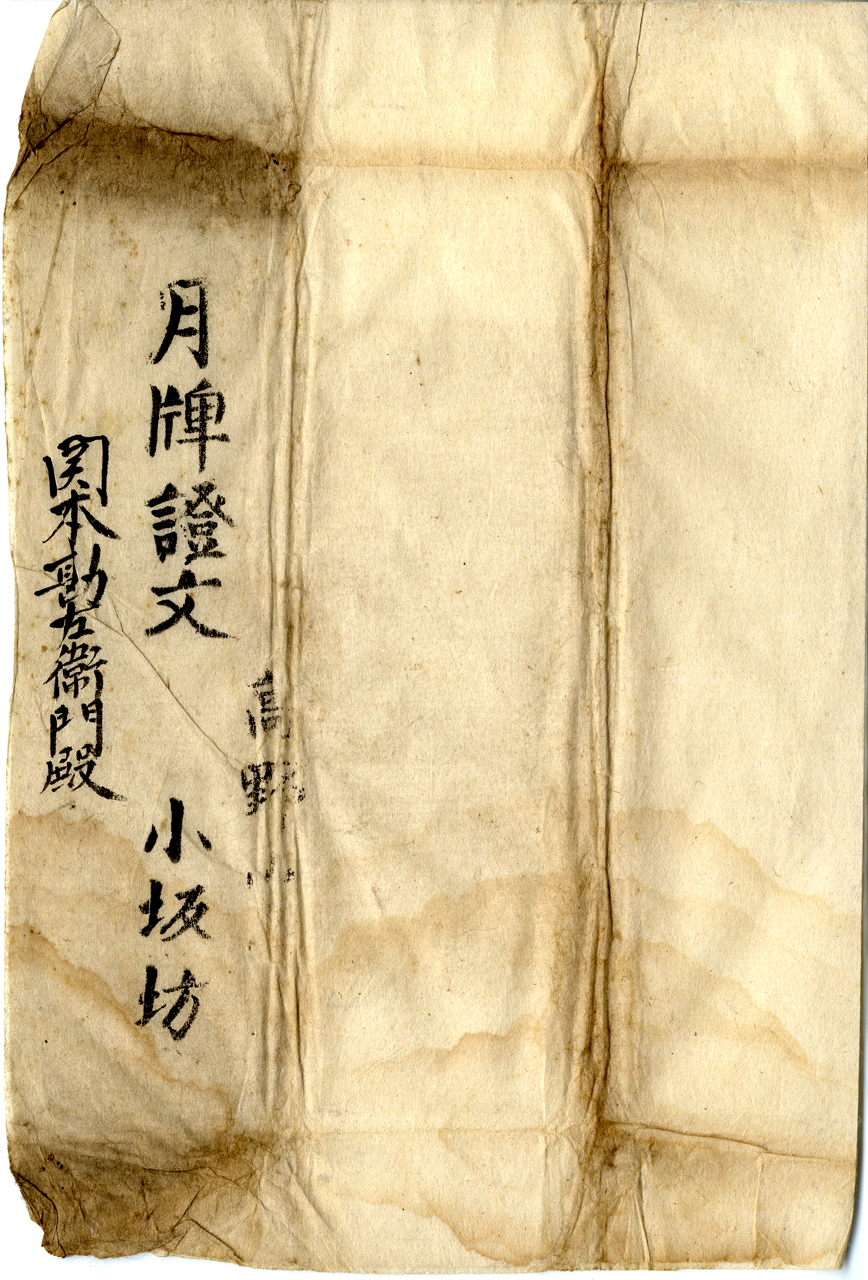 高野山
月牌證文
小坂坊
関本勘左衛門殿